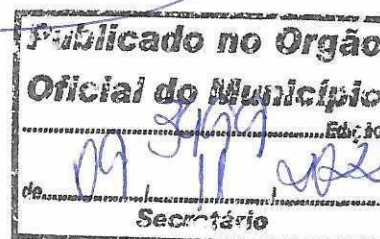 Publicado no Órgão
Oficial do Município
Edição
de 09 11
Secretário